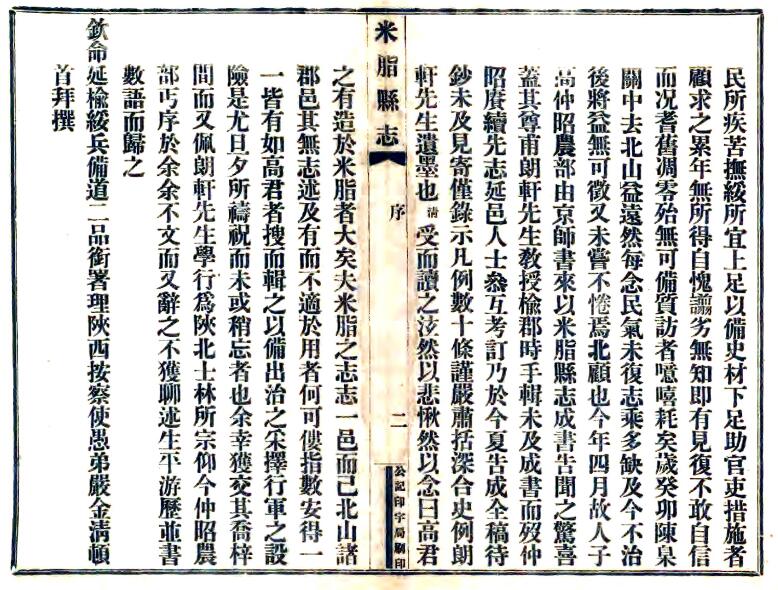 民所疾苦撫綏所宜上足以備史材下足助官吏措施者
顧求之累年無所得自愧譾劣無知即有見復不敢自信
而况耆舊凋零殆無可備質訪者噫嘻耗矣歲癸卯陳臬
關中去北山益遠然每念民氣未復志乘多缺及今不治
後將益無可徵又未嘗不惓焉北顧也今年四月故人子
高仲昭農部由京師書來以米脂縣志成書告聞之驚喜
蓋其尊甫朗軒先生教授榆郡時手輯未及成書而歿仲
昭賡續先志延邑人士叅互考訂乃於今夏告成全稿待
鈔未及見寄僅錄示凡例數十條謹嚴肅括深合史例朗
軒先生遺墨也清受而讀之泫然以悲愀然以念曰高君
米脂縣志
序
二
公記印字局刷印
之有造於米脂者大矣夫米脂之志志一邑而已北山諸
郡邑其無志述及有而不適於用者何可僂指數安得一
一皆有如高君者搜而輯之以備出治之采擇行軍之設
險是尤旦夕所禱祝而未或稍忘者也余幸獲交其喬梓
間而又佩朗軒先生學行爲陝北士林所宗仰今仲昭農
部丐序於余余不文而又辭之不獲聊述生平游歷並書
數語而歸之
欽命延榆綏兵備道二品銜署理陝西按察使愚弟嚴金清頓
首拜撰